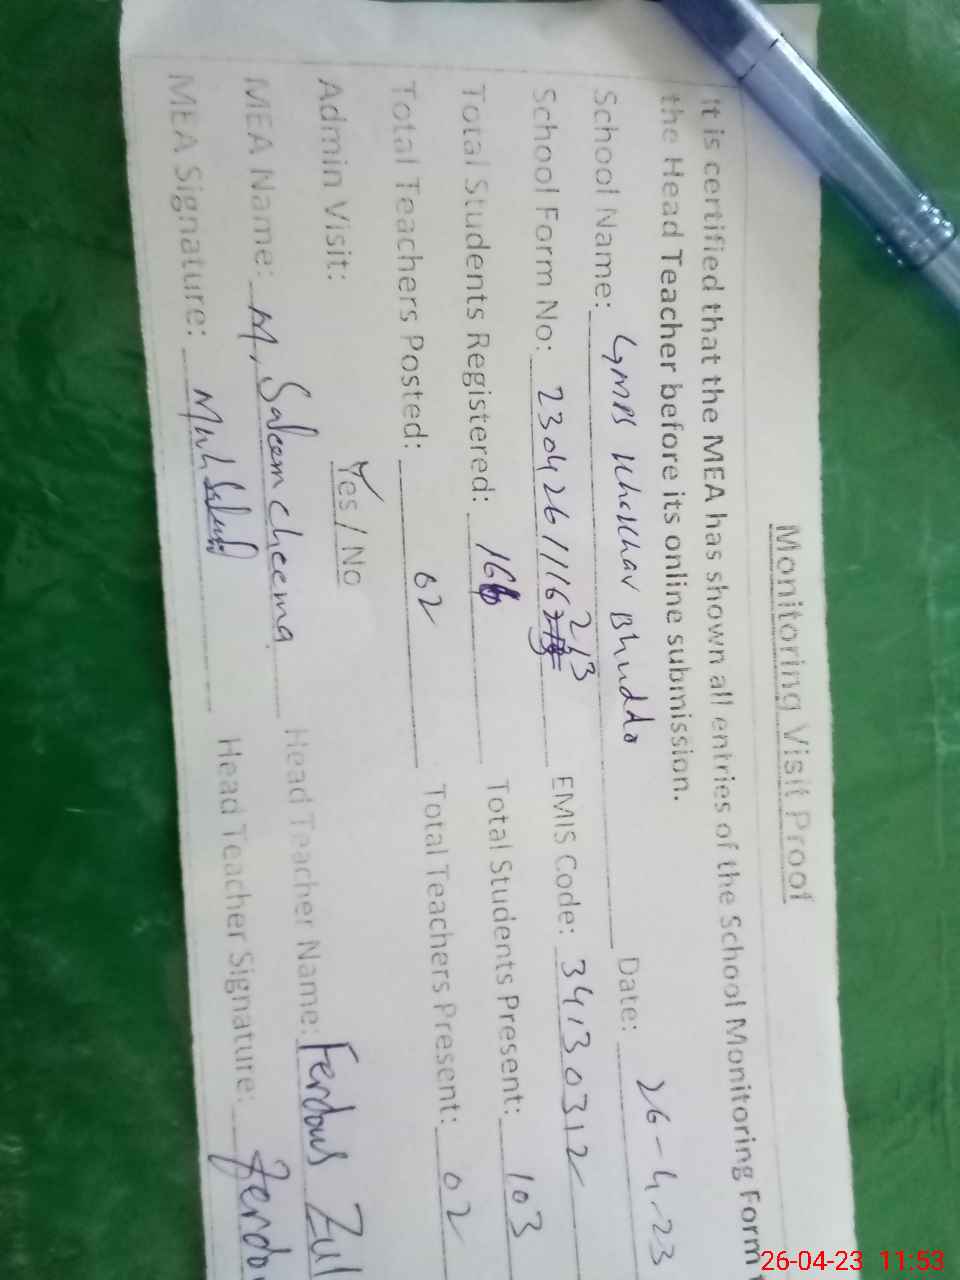 Monitoring Visit Proof
It is certified that the MEA has shown all entries of the School Monitoring Form
the Head Teacher before its online submission.
School Name: GMPS Bhudda Date: 26-4-23
School Form No: 2304261116 213 EMIS Code: 34130312
Total Students Registered: Total Students Present: 103
Total Teachers Posted: 02 Total Teachers Present: 02
Admin Visit: Yes / No
MEA Name: M. Saleem cheema Head Teacher Name: Ferdous Zul
MEA Signature: Head Teacher Signature: Ferdo
26-04-23 11:53